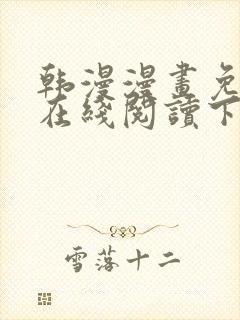 韩漫漫畫免
在綫閱讀下
雪落十二